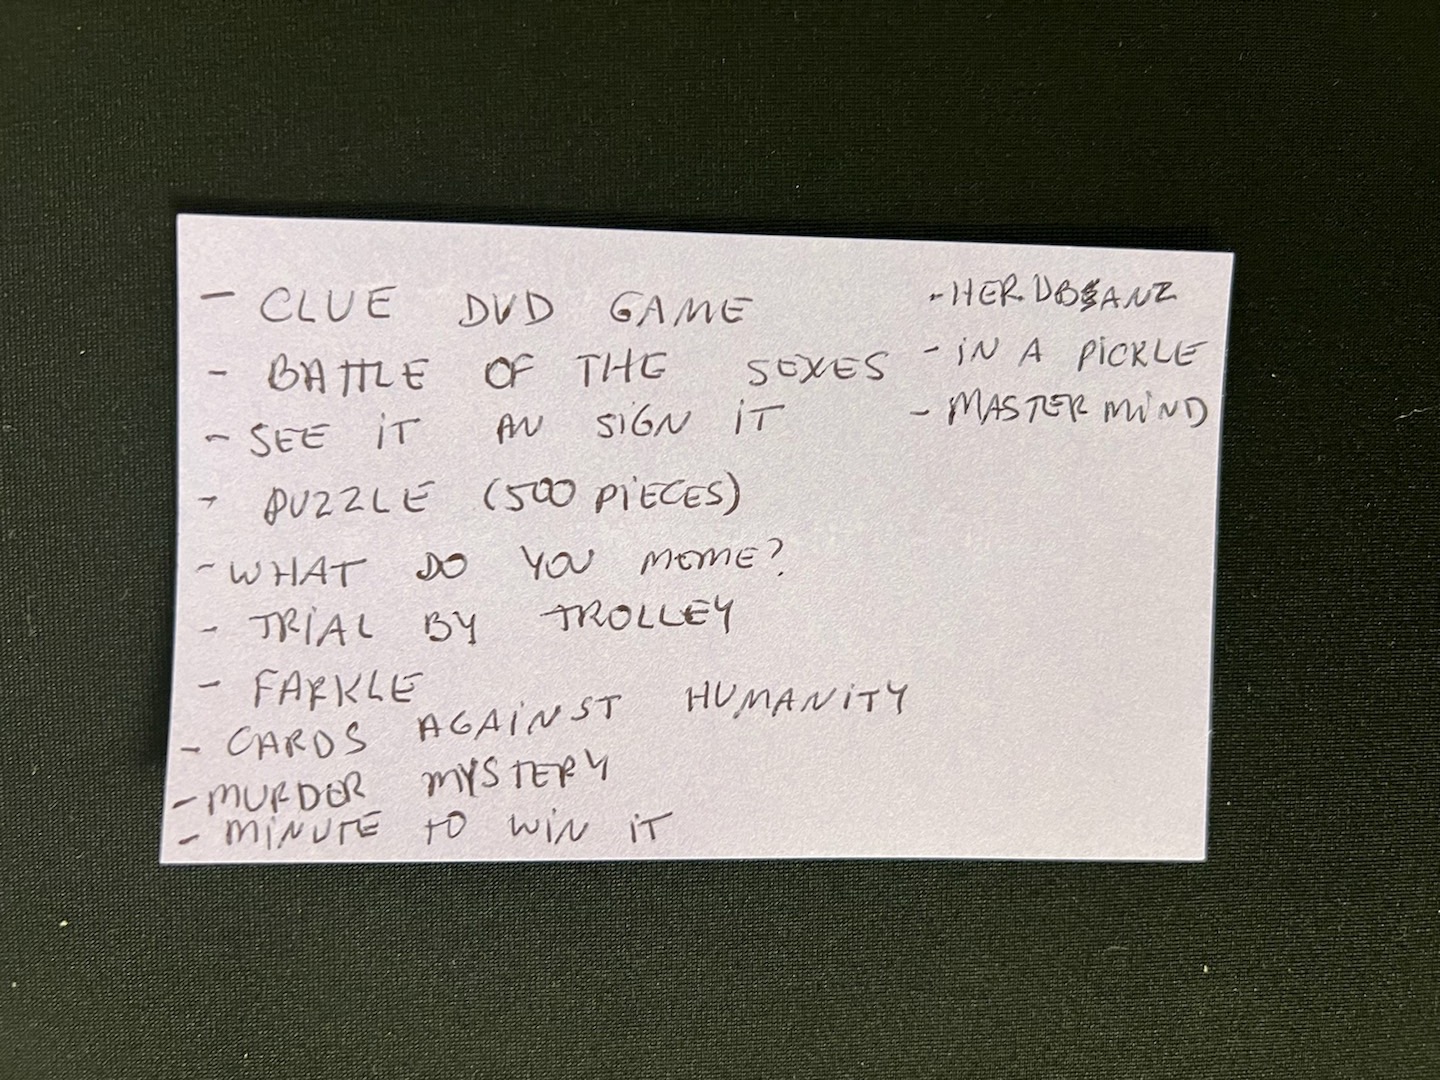 - CLUE DVD GAME
- BATTLE OF THE SEXES
- SEE IT AN SIGN IT
- PUZZLE (500 PIECES)
- WHAT DO YOU MEME?
- TRIAL BY TROLLEY
- FARKLE
- CARDS AGAINST HUMANITY
- MURDER MYSTERY
- MINUTE TO WIN IT
- IN A PICKLE
- MASTER MIND